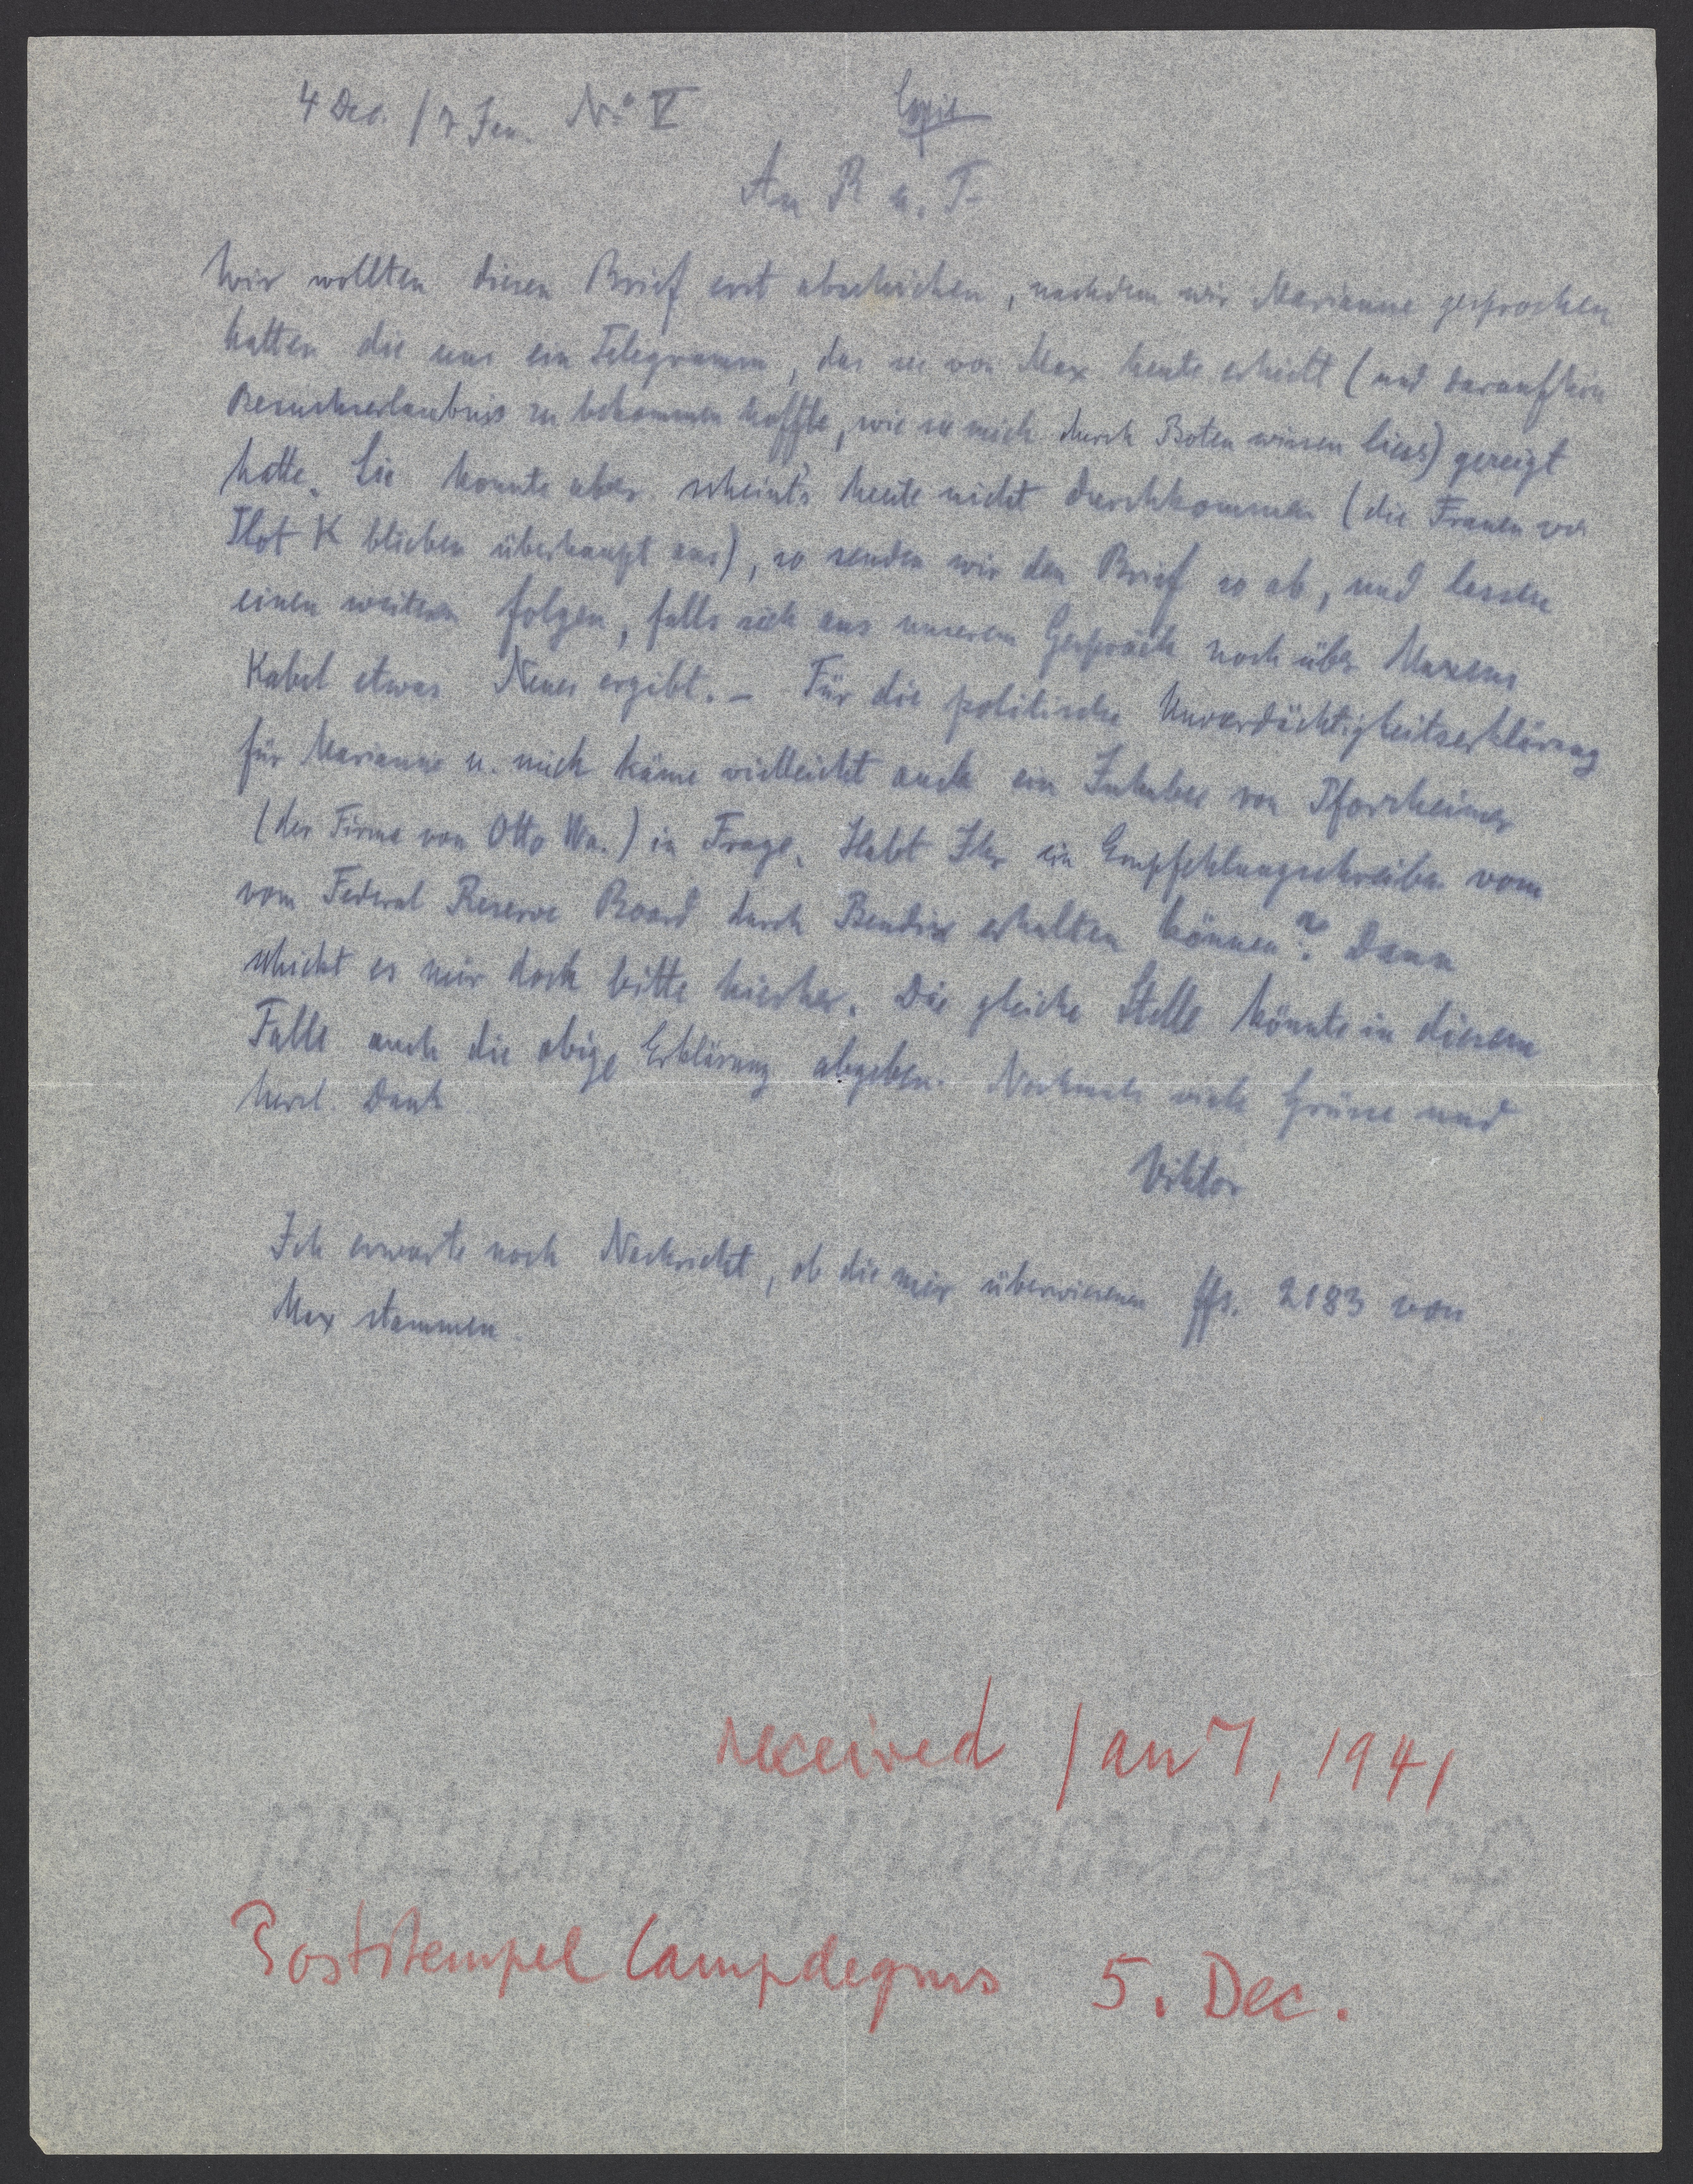 4 Dec. / 7 Jan. No V Copie
An R u. F
Wir wollten diesen Brief erst abschicken, nachdem wir Marianne gesprochen
hatten die uns ein Telegramm, das sie von Max heute erhielt (und daraufhin
Besuchserlaubnis zu bekommen hoffte, wie sie mich durch Boten wissen liess) gezeigt
hatte. Sie konnte aber scheint's heute nicht durchkommen (die Frauen von
Ilot K blieben überhaupt aus), so senden wir den Brief so ab, und lassen
einen weitern folgen, falls sich aus unserem Gespräch noch über Maxens
Kabel etwas Neues ergibt. – Für die politische Unverdächtigkeitserklärung
für Marianne u. mich käme vielleicht auch ein Inhaber von Pforzheimer
(der Firma von Otto Wa.) in Frage. Habt Ihr ein Empfehlungschreiben vom
vom Federal Reserve Board durch Bendix erhalten können? Dann
schickt es mir doch bitte hierher. Die gleiche Stelle könnte in diesem
Falle auch die obige Erklärung abgeben. Nochmals viele Grüsse und
herzl. Dank
Viktor
Ich erwarte noch Nachricht, ob die mir überwiesenen ffs. 2183 von
Max stammen.
received Jan 7, 1941
Poststempel Campdegurs 5. Dec.